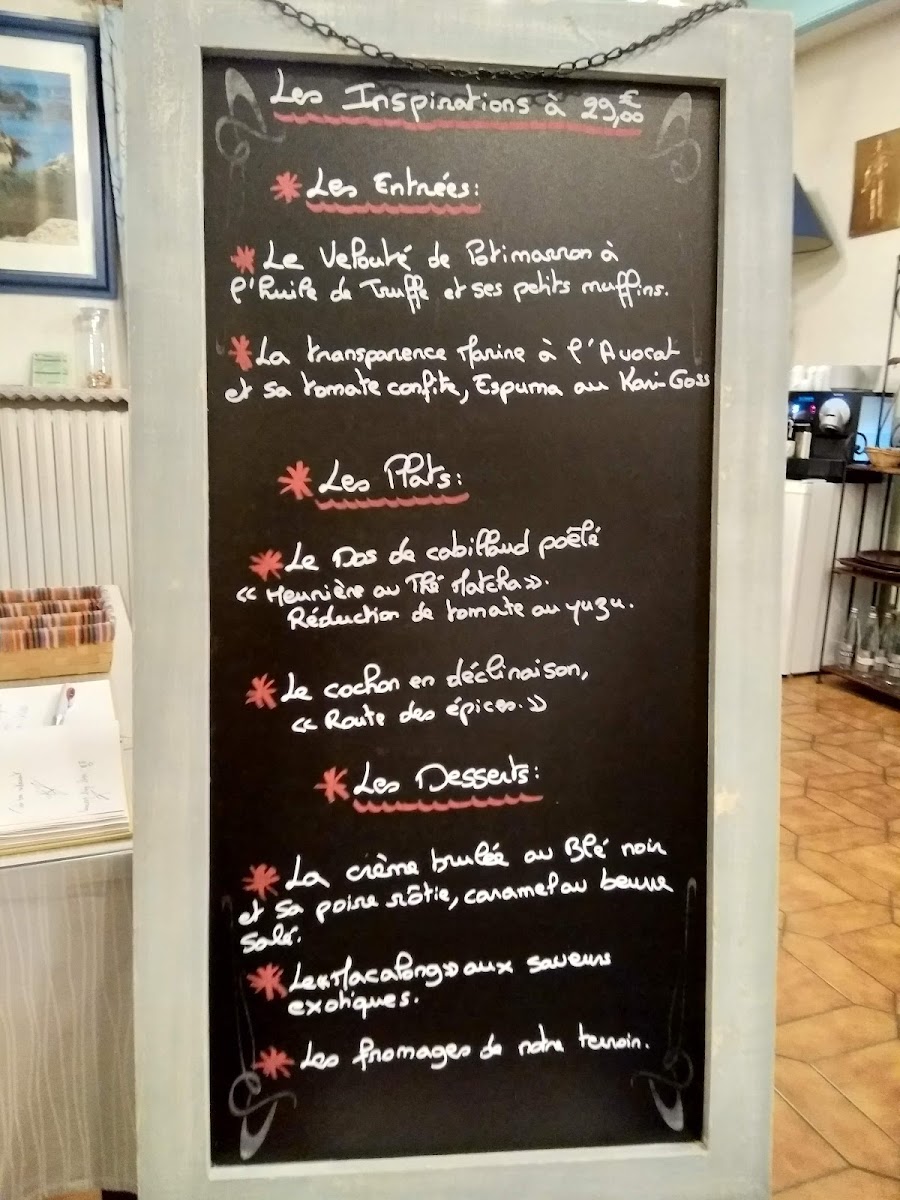 Les Inspirations à 29,00 €
* Les Entrées:
* Le Velouté de Potimarron à
l'huile de Truffe et ses petits muffins.
* La transparence Marine à l'Avocat
et sa tomate confite, Espuma au Kari Goss
* Les Plats:
* Le Dos de cabillaud poêlé
« Meunière au Thé Matcha ».
Réduction de tomate au yuzu.
* Le cochon en déclinaison,
« Route des épices. »
* Les Desserts:
* La crème brulée au Blé noir
et sa poire rôtie, caramel au beurre
salé.
* Le « Macalong » aux saveurs
exotiques.
* Les fromages de notre terroir.